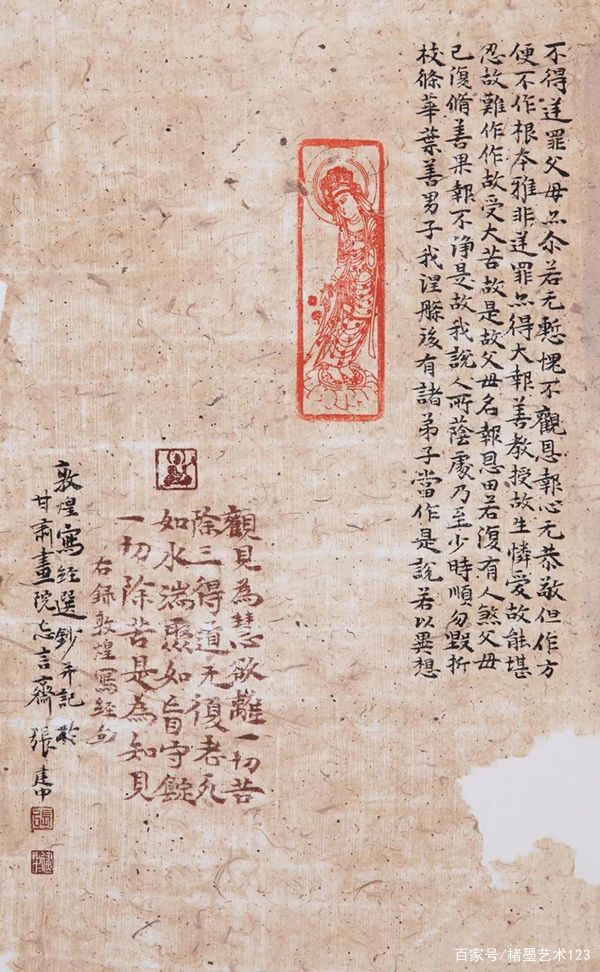 不得逆罪父母亦尒若无慙愧不觀恩報心无恭敬但作方
便不作根本雖非逆罪亦得大報善教授故生憐愛故能堪
忍故難作作故受大苦故是故父母名報恩田若復有人煞父母
已復脩善果報不淨是故我說人所蔭處乃至少時順勿毀折
枝條華葉善男子我涅槃後有諸弟子當作是說若以異想
觀見為慧欲離一切苦
除三得道无復老死
如水湍聚如盲守錠
一切除苦是為知見
右録敦煌寫經句
敦煌寫經選鈔并記於
甘肅畫院忘言齋 張建中
張
百家号/楮墨艺术123